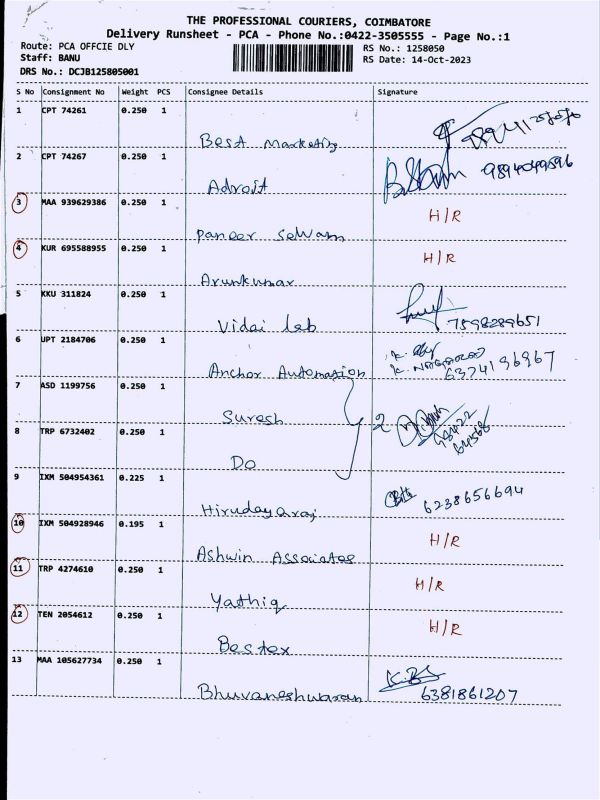 THE PROFESSIONAL COURIERS, COIMBATORE
Delivery Runsheet - PCA - Phone No.:0422-3505555 - Page No.:1
Route: PCA OFFCIE DLY RS No.: 1258050
Staff: BANU RS Date: 14-Oct-2023
DRS No.: DCJB125805001
S No Consignment No Weight PCS Consignee Details Signature
1 CPT 74261 0.250 1
Best Marketing
2 CPT 74267 0.250 1 9894049596
Adroit
3 MAA 939629386 0.250 1 H/R
Paneer Selvam
4 KUR 695588955 0.250 1 H/R
Arunkumar
5 KKU 311824 0.250 1
Vidai Lab 7598289651
6 UPT 2184706 0.250 1
K. NAGARAJ
Anchor Automation 6374196967
7 ASD 1199756 0.250 1
Suresh 2
98422
64568
8 TRP 6732402 0.250 1
Do
9 IXM 504954361 0.225 1
6238656694
Hirudayaraj
10 IXM 504928946 0.195 1 H/R
Ashwin Associates
11 TRP 4274610 0.250 1 H/R
Yathiq
12 TEN 2054612 0.250 1 H/R
Bestex
13 MAA 105627734 0.250 1
Bhuvaneshwaran 6381861207